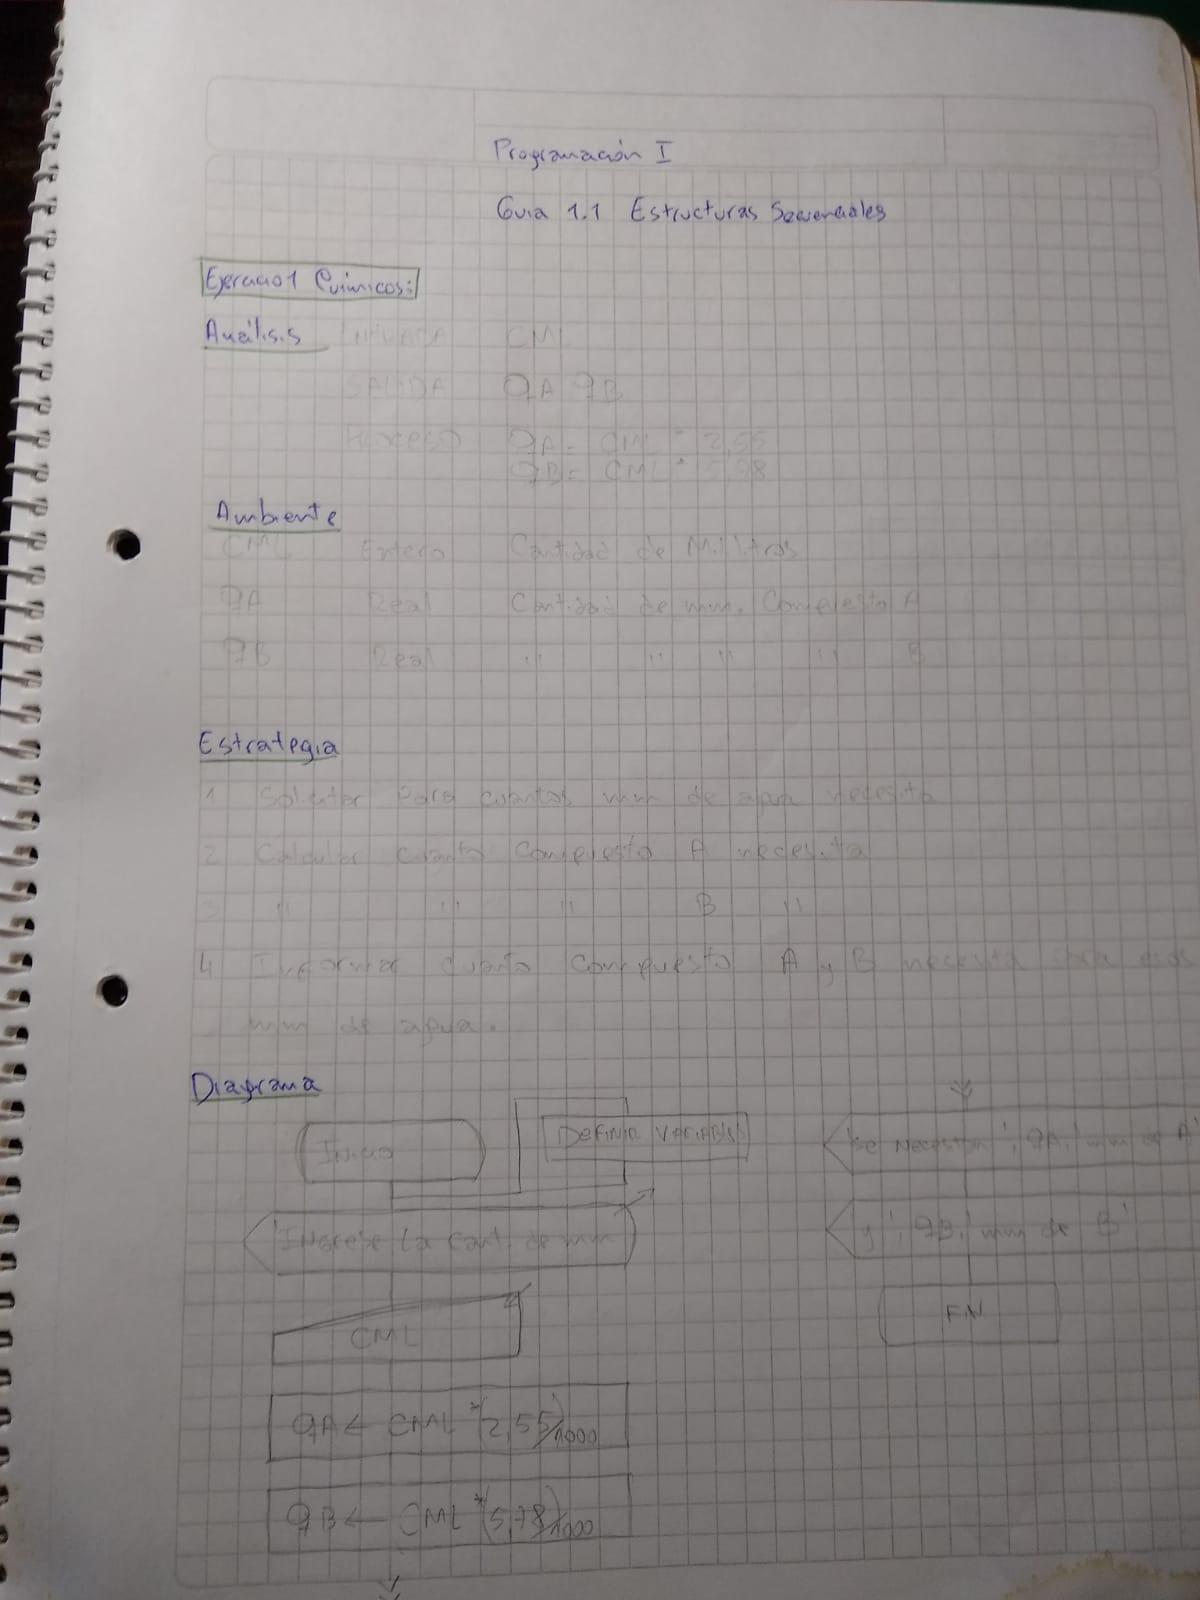 Programación I
Guia 1.1 Estructuras Secuenciales
Ejercicio 1 Químicos:
Análisis ENTRADA CML
SALIDA QA QB
PROCESO QA = CML * 2,55
QB = CML * 5,78
Ambiente
CML Entero Cantidad de Mililitros
QA Real Cantidad de mm. Compuesto A
QB Real " " " " B
Estrategia
1 Solicitar Para cuantos mm de agua necesita
2 Calcular cuanto Compuesto A necesita
3 " " " B "
4 Informar cuanto compuesto A y B necesita para esos
mm de agua.
Diagrama
Inicio
Definir VARIABLES
'Ingrese la cant. de mm
CML
QA ← CML * (2,55/1000)
QB ← CML * (5,78/1000)
'Se necesitan', QA, 'mm de A'
'y', QB, 'mm de B'
FIN